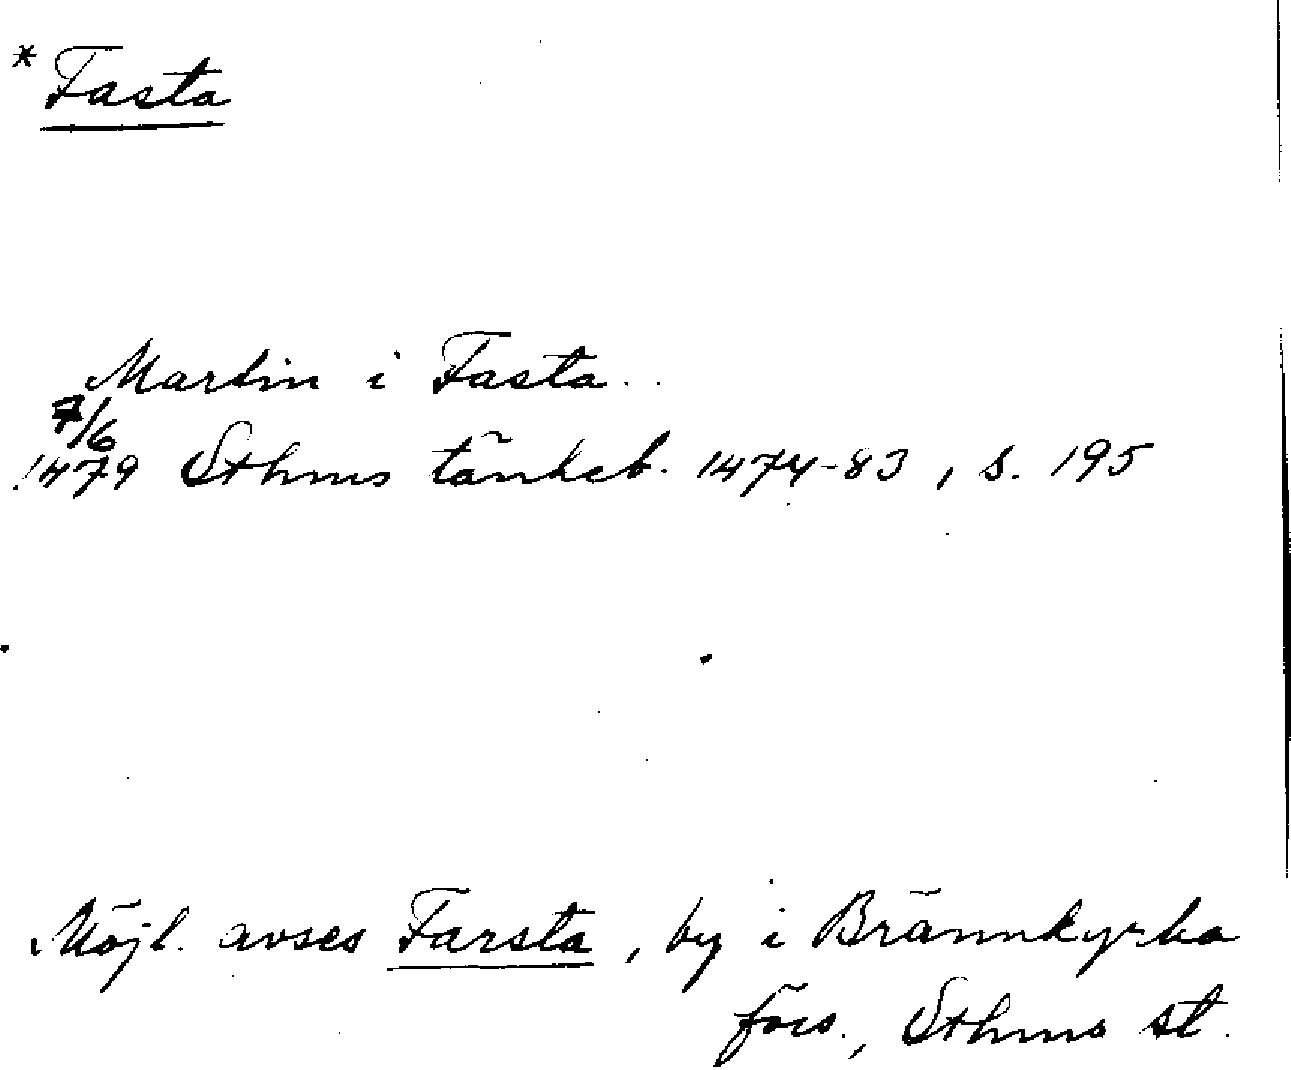 * Fasta
Martin i Fasta..
7/6
1479 Sthms tänkeb. 1474-83, s. 195
Möjl. avses Farsta, by i Brännkyrka
förs., Sthms st.